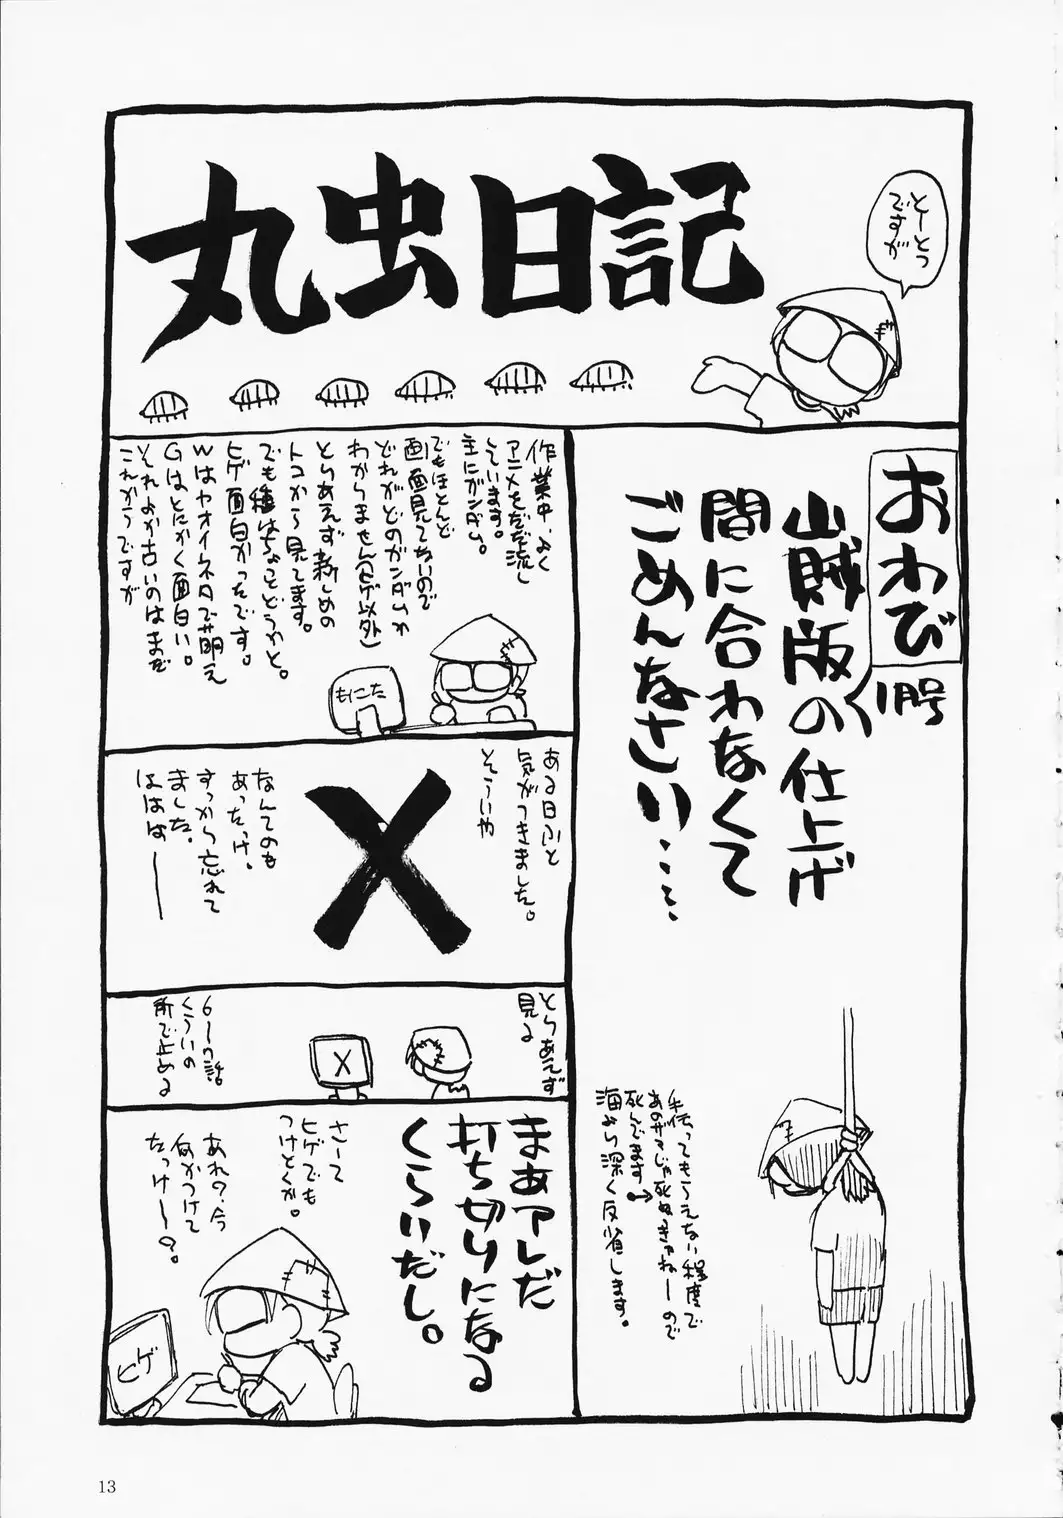 丸虫日記
とーとつ
ですが
おわび
1号
山賊版の仕上げ
間に合わなくて
ごめんなさい…
手伝ってもらえない程度で
あのザマじゃ死ぬきゃねーので
死んでます→
海より深く反省します。
作業中、よく
アニメをだだ流し
しています。
主にガンダム。
でもほとんど
画面見てないので
どれがどのガンダムか
わかりません(ヒゲ以外)
とりあえず新しめの
トコから見てます。
でも種はちょっとどうかと。
ヒゲ面白かったです。
Wはヤオイネタで萌え
Gはとにかく面白い。
それより古いのはまだ
これからですが
もにた
ある日ふと
気がつきました。
そういや
X
なんてのも
あったっけ、
すっかり忘れて
ました。
ははは──
とりあえず
見る
X
6〜7話
くらいの
所で止める
まあアレだ
打ち切りになる
くらいだし。
さーて
ヒゲでも
つけとくか。
あれ?今
何かつけて
たっけ〜?。
ヒゲ
13